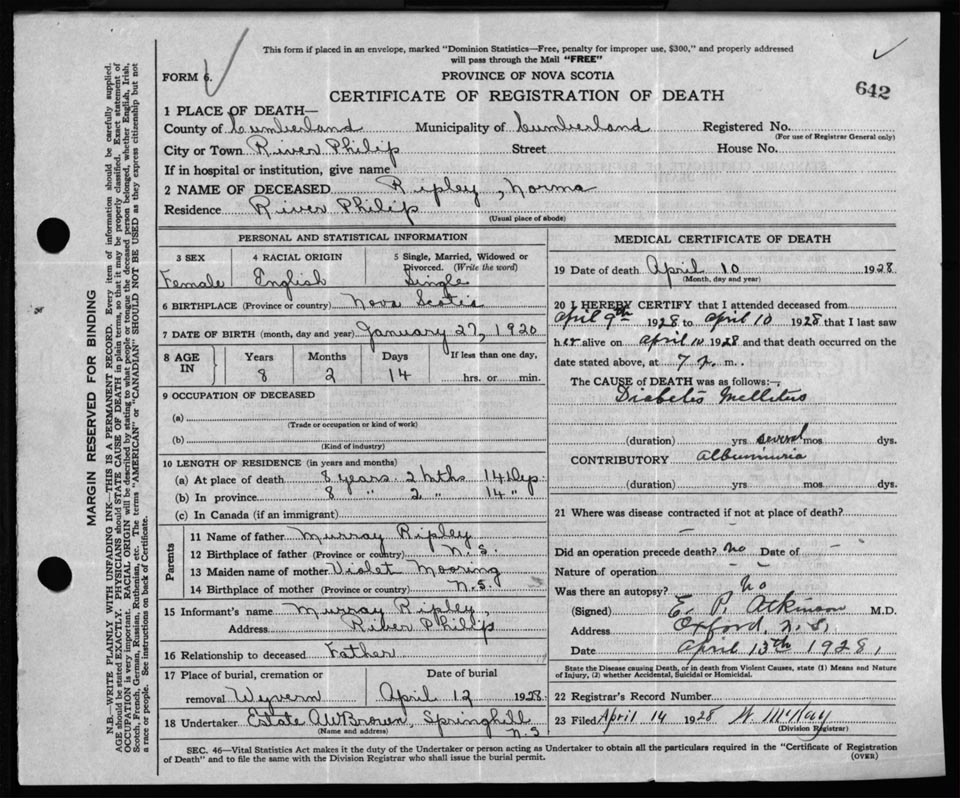 This form if placed in an envelope, marked "Dominion Statistics—Free, penalty for improper use, $300," and properly addressed
will pass through the Mail "FREE"
FORM 6.
PROVINCE OF NOVA SCOTIA
642
CERTIFICATE OF REGISTRATION OF DEATH
1 PLACE OF DEATH—
County of Cumberland Municipality of Cumberland Registered No.
(For use of Registrar General only)
City or Town River Philip Street House No.
If in hospital or institution, give name
2 NAME OF DECEASED Ripley, Norma
Residence River Philip
(Usual place of abode)
PERSONAL AND STATISTICAL INFORMATION
3 SEX 4 RACIAL ORIGIN 5 Single, Married, Widowed or
Divorced. (Write the word)
Female English Single
6 BIRTHPLACE (Province or country) Nova Scotia
7 DATE OF BIRTH (month, day and year) January 27, 1920
8 AGE IN Years Months Days If less than one day,
8 2 14 hrs. or min.
9 OCCUPATION OF DECEASED
(a)
(Trade or occupation or kind of work)
(b)
(Kind of industry)
10 LENGTH OF RESIDENCE (in years and months)
(a) At place of death 8 years 2 mths 14 Dys.
(b) In province 8 " 2 " 14 "
(c) In Canada (if an immigrant)
Parents
11 Name of father Murray Ripley
12 Birthplace of father (Province or country) N.S.
13 Maiden name of mother Violet Mooring
14 Birthplace of mother (Province or country) N.S.
15 Informant's name Murray Ripley,
Address River Philip
16 Relationship to deceased Father
17 Place of burial, cremation or Date of burial
removal Wyvern April 12 1928
18 Undertaker Estate AWBrown, Springhill
N.S
(Name and address)
MEDICAL CERTIFICATE OF DEATH
19 Date of death April 10 1928
(Month, day and year)
20 I HEREBY CERTIFY that I attended deceased from
April 9th 1928 to April 10 1928 that I last saw
her alive on April 10 1928 and that death occurred on the
date stated above, at 7 m.
The CAUSE of DEATH was as follows:—
Diabetes Mellitus
(duration) yrs several mos dys.
CONTRIBUTORY Albuminuria
(duration) yrs mos dys.
21 Where was disease contracted if not at place of death?
Did an operation precede death? No Date of —
Nature of operation
Was there an autopsy? No
(Signed) E. P. Atkinson M.D.
Address Oxford, N.S,
Date April 13th 1928,
State the Disease causing Death, or in death from Violent Causes, state (1) Means and Nature
of Injury, (2) whether Accidental, Suicidal or Homicidal.
22 Registrar's Record Number
23 Filed April 14 1928 W. McKay
(Division Registrar)
SEC. 46—Vital Statistics Act makes it the duty of the Undertaker or person acting as Undertaker to obtain all the particulars required in the "Certificate of Registration
of Death" and to file the same with the Division Registrar who shall issue the burial permit.
(OVER)
MARGIN RESERVED FOR BINDING
N.B.—WRITE PLAINLY WITH UNFADING INK—THIS IS A PERMANENT RECORD. Every item of information should be carefully supplied.
AGE should be stated EXACTLY. PHYSICIANS should STATE CAUSE OF DEATH in plain terms, so that it may be properly classified. Exact statement of
OCCUPATION is very important. RACIAL ORIGIN will be described by stating to what people or tongue the deceased person belonged, whether English, Irish,
Scotch, French, German, Russian, Ruthenian, etc. The terms "AMERICAN" or "CANADIAN" SHOULD NOT BE USED as they express citizenship but not
a race or people. See instructions on back of Certificate.